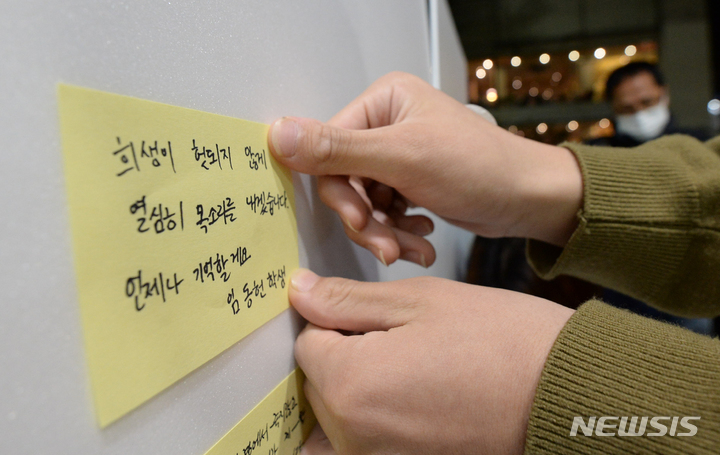 희생이 헛되지 않게
열심히 목소리를 내겠습니다.
언제나 기억할게요
임동헌 학생
NEWSIS